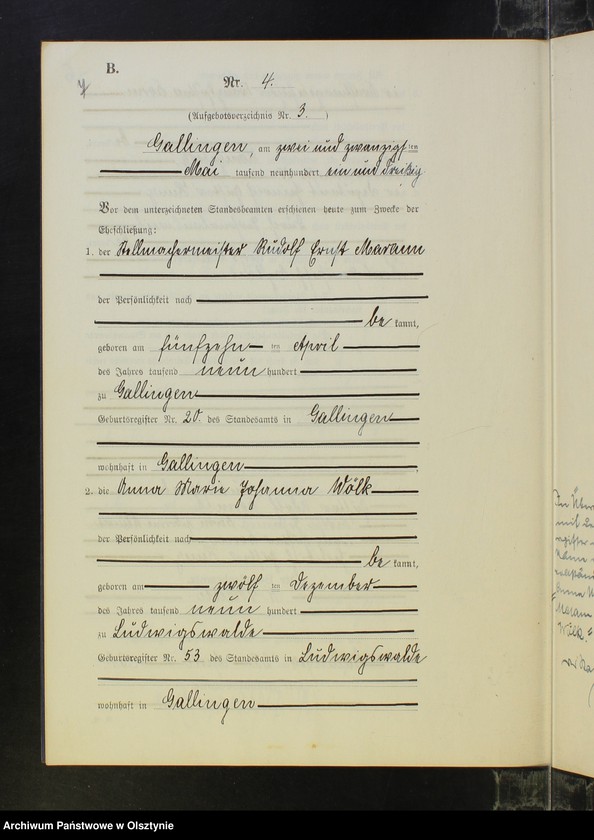 B.
Nr. 4.
(Aufgebotsverzeichnis Nr. 3.)
Gallingen, am zwei und zwanzigsten
Mai tausend neunhundert ein und dreißig
Vor dem unterzeichneten Standesbeamten erschienen heute zum Zwecke der
Eheschließung:
1. der Stellmachermeister Rudolf Ernst Marann
der Persönlichkeit nach
be kannt,
geboren am fünfzehn ten April
des Jahres tausend neun hundert
zu Gallingen
Geburtsregister Nr. 20. des Standesamts in Gallingen
wohnhaft in Gallingen
2. die Anna Marie Johanna Wölk
der Persönlichkeit nach
be kannt,
geboren am zwölf ten Dezember
des Jahres tausend neun hundert
zu Ludwigswalde
Geburtsregister Nr. 53 des Standesamts in Ludwigswalde
wohnhaft in Gallingen
Archiwum Państwowe w Olsztynie